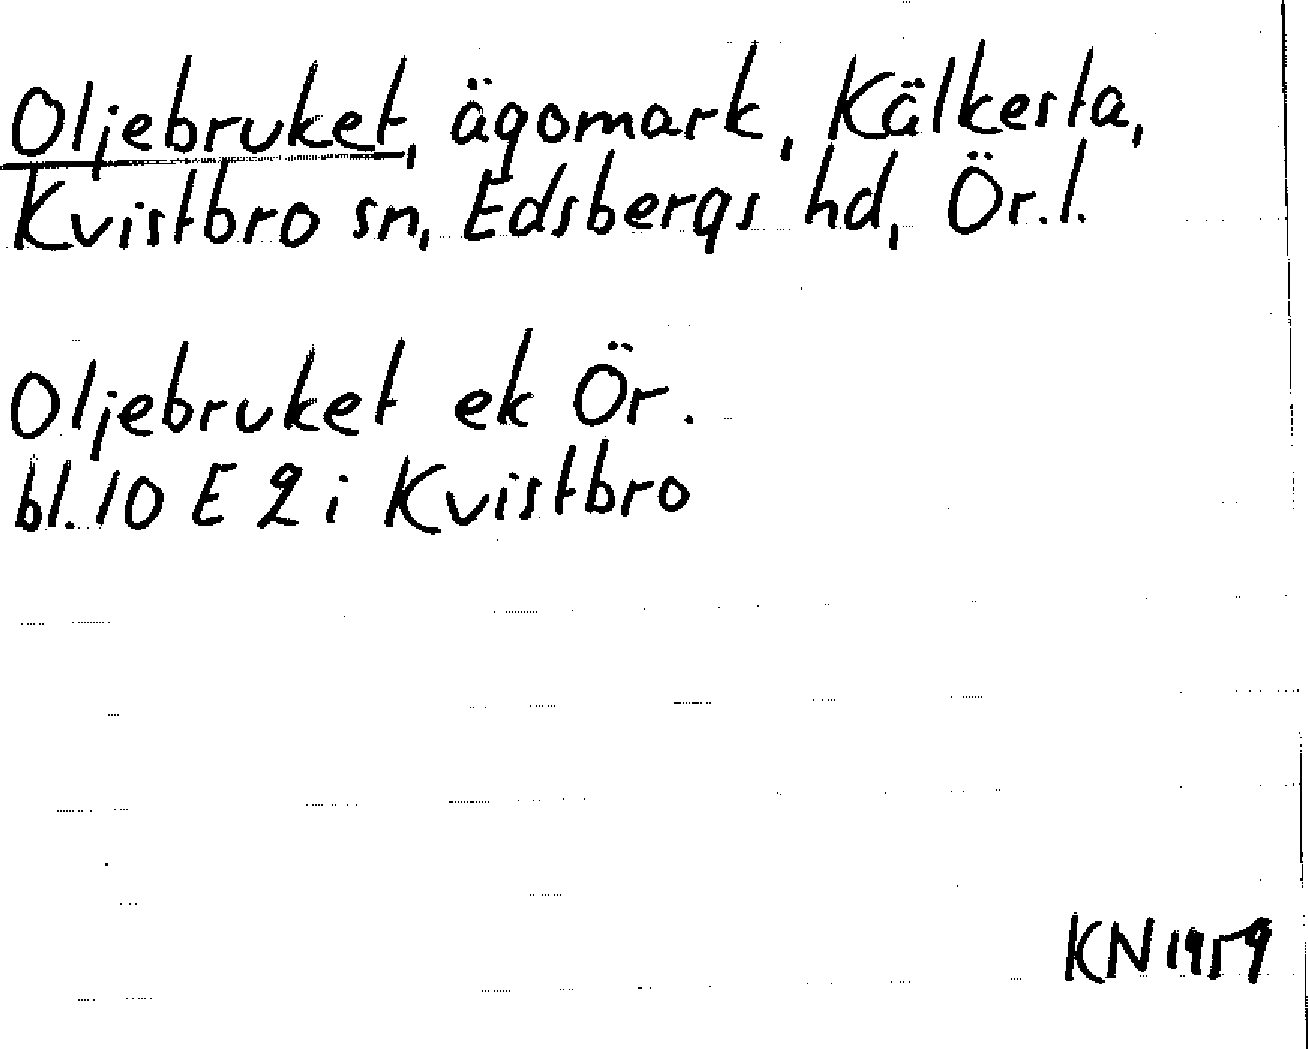 Oljebruket, ägomark, Kälkesta,
Kvistbro sn, Edsbergs hd, Ör.l.
Oljebruket ek Ör.
bl. 10 E 2 i Kvistbro
KN 1959